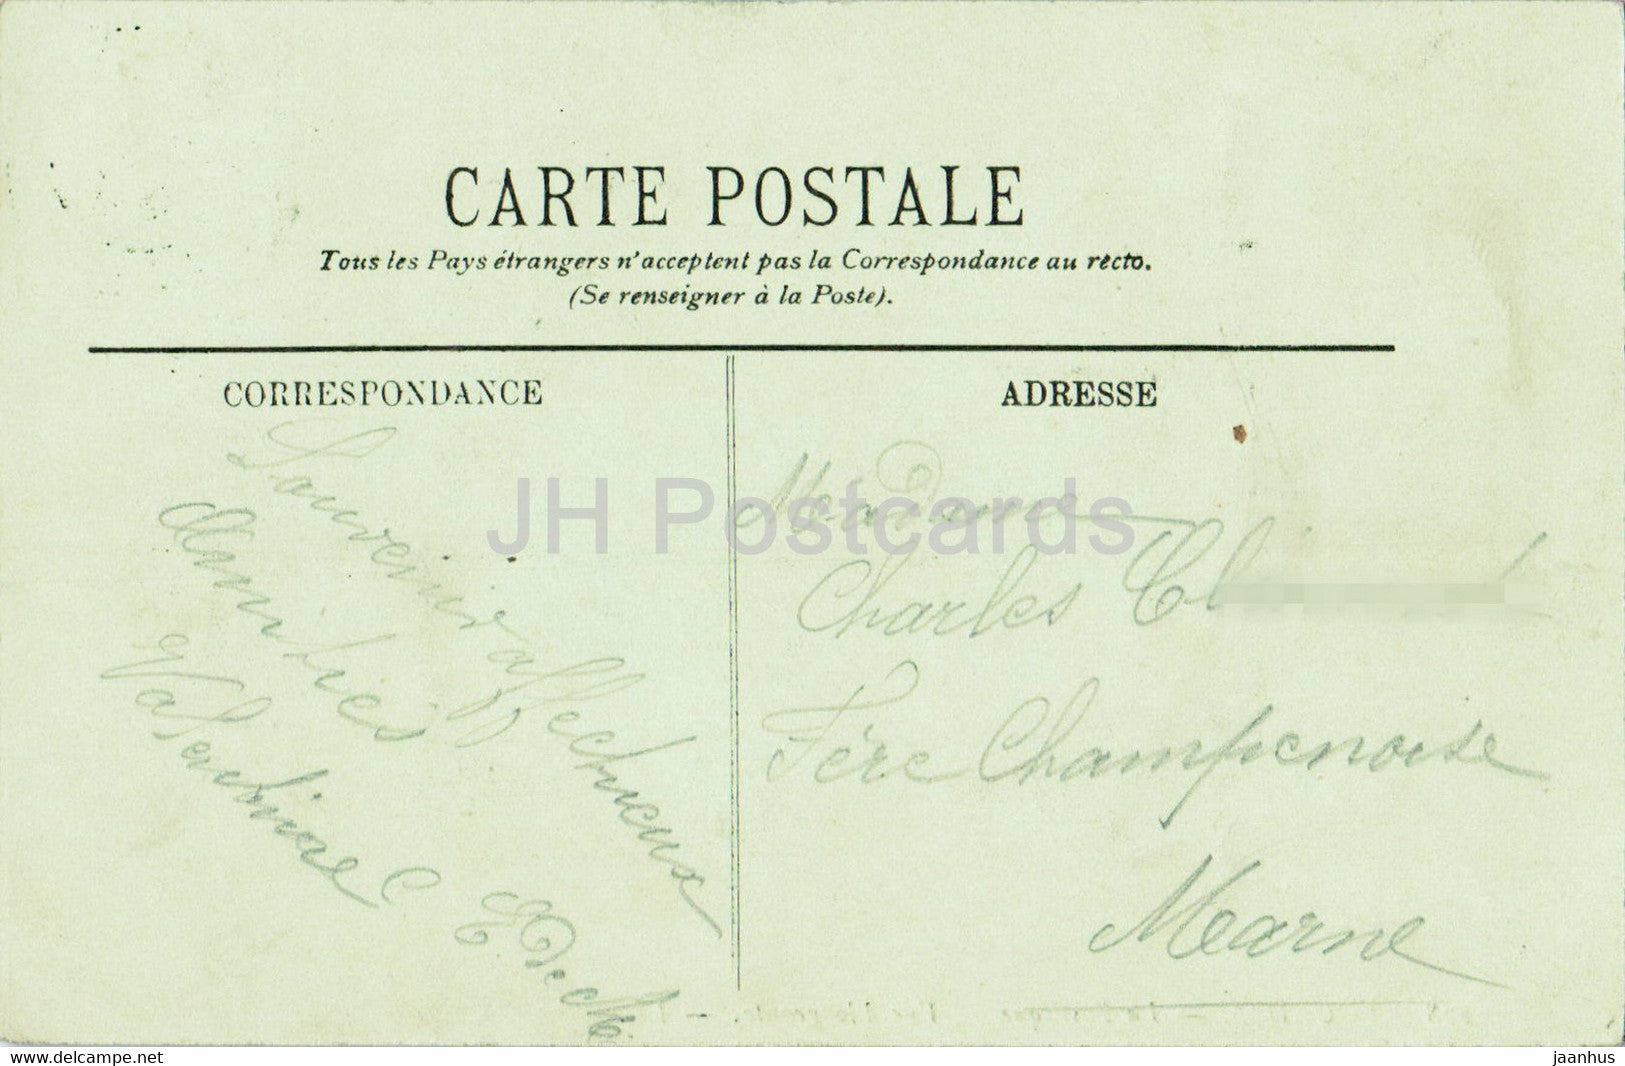 CARTE POSTALE
Tous les Pays étrangers n'acceptent pas la Correspondance au recto.
(Se renseigner à la Poste).
CORRESPONDANCE
Souvenirs affectueux
Amitiés
Valentine
ADRESSE
Madame
Charles
Fère Champenoise
Marne
JH Postcards
www.delcampe.net
jaanhus